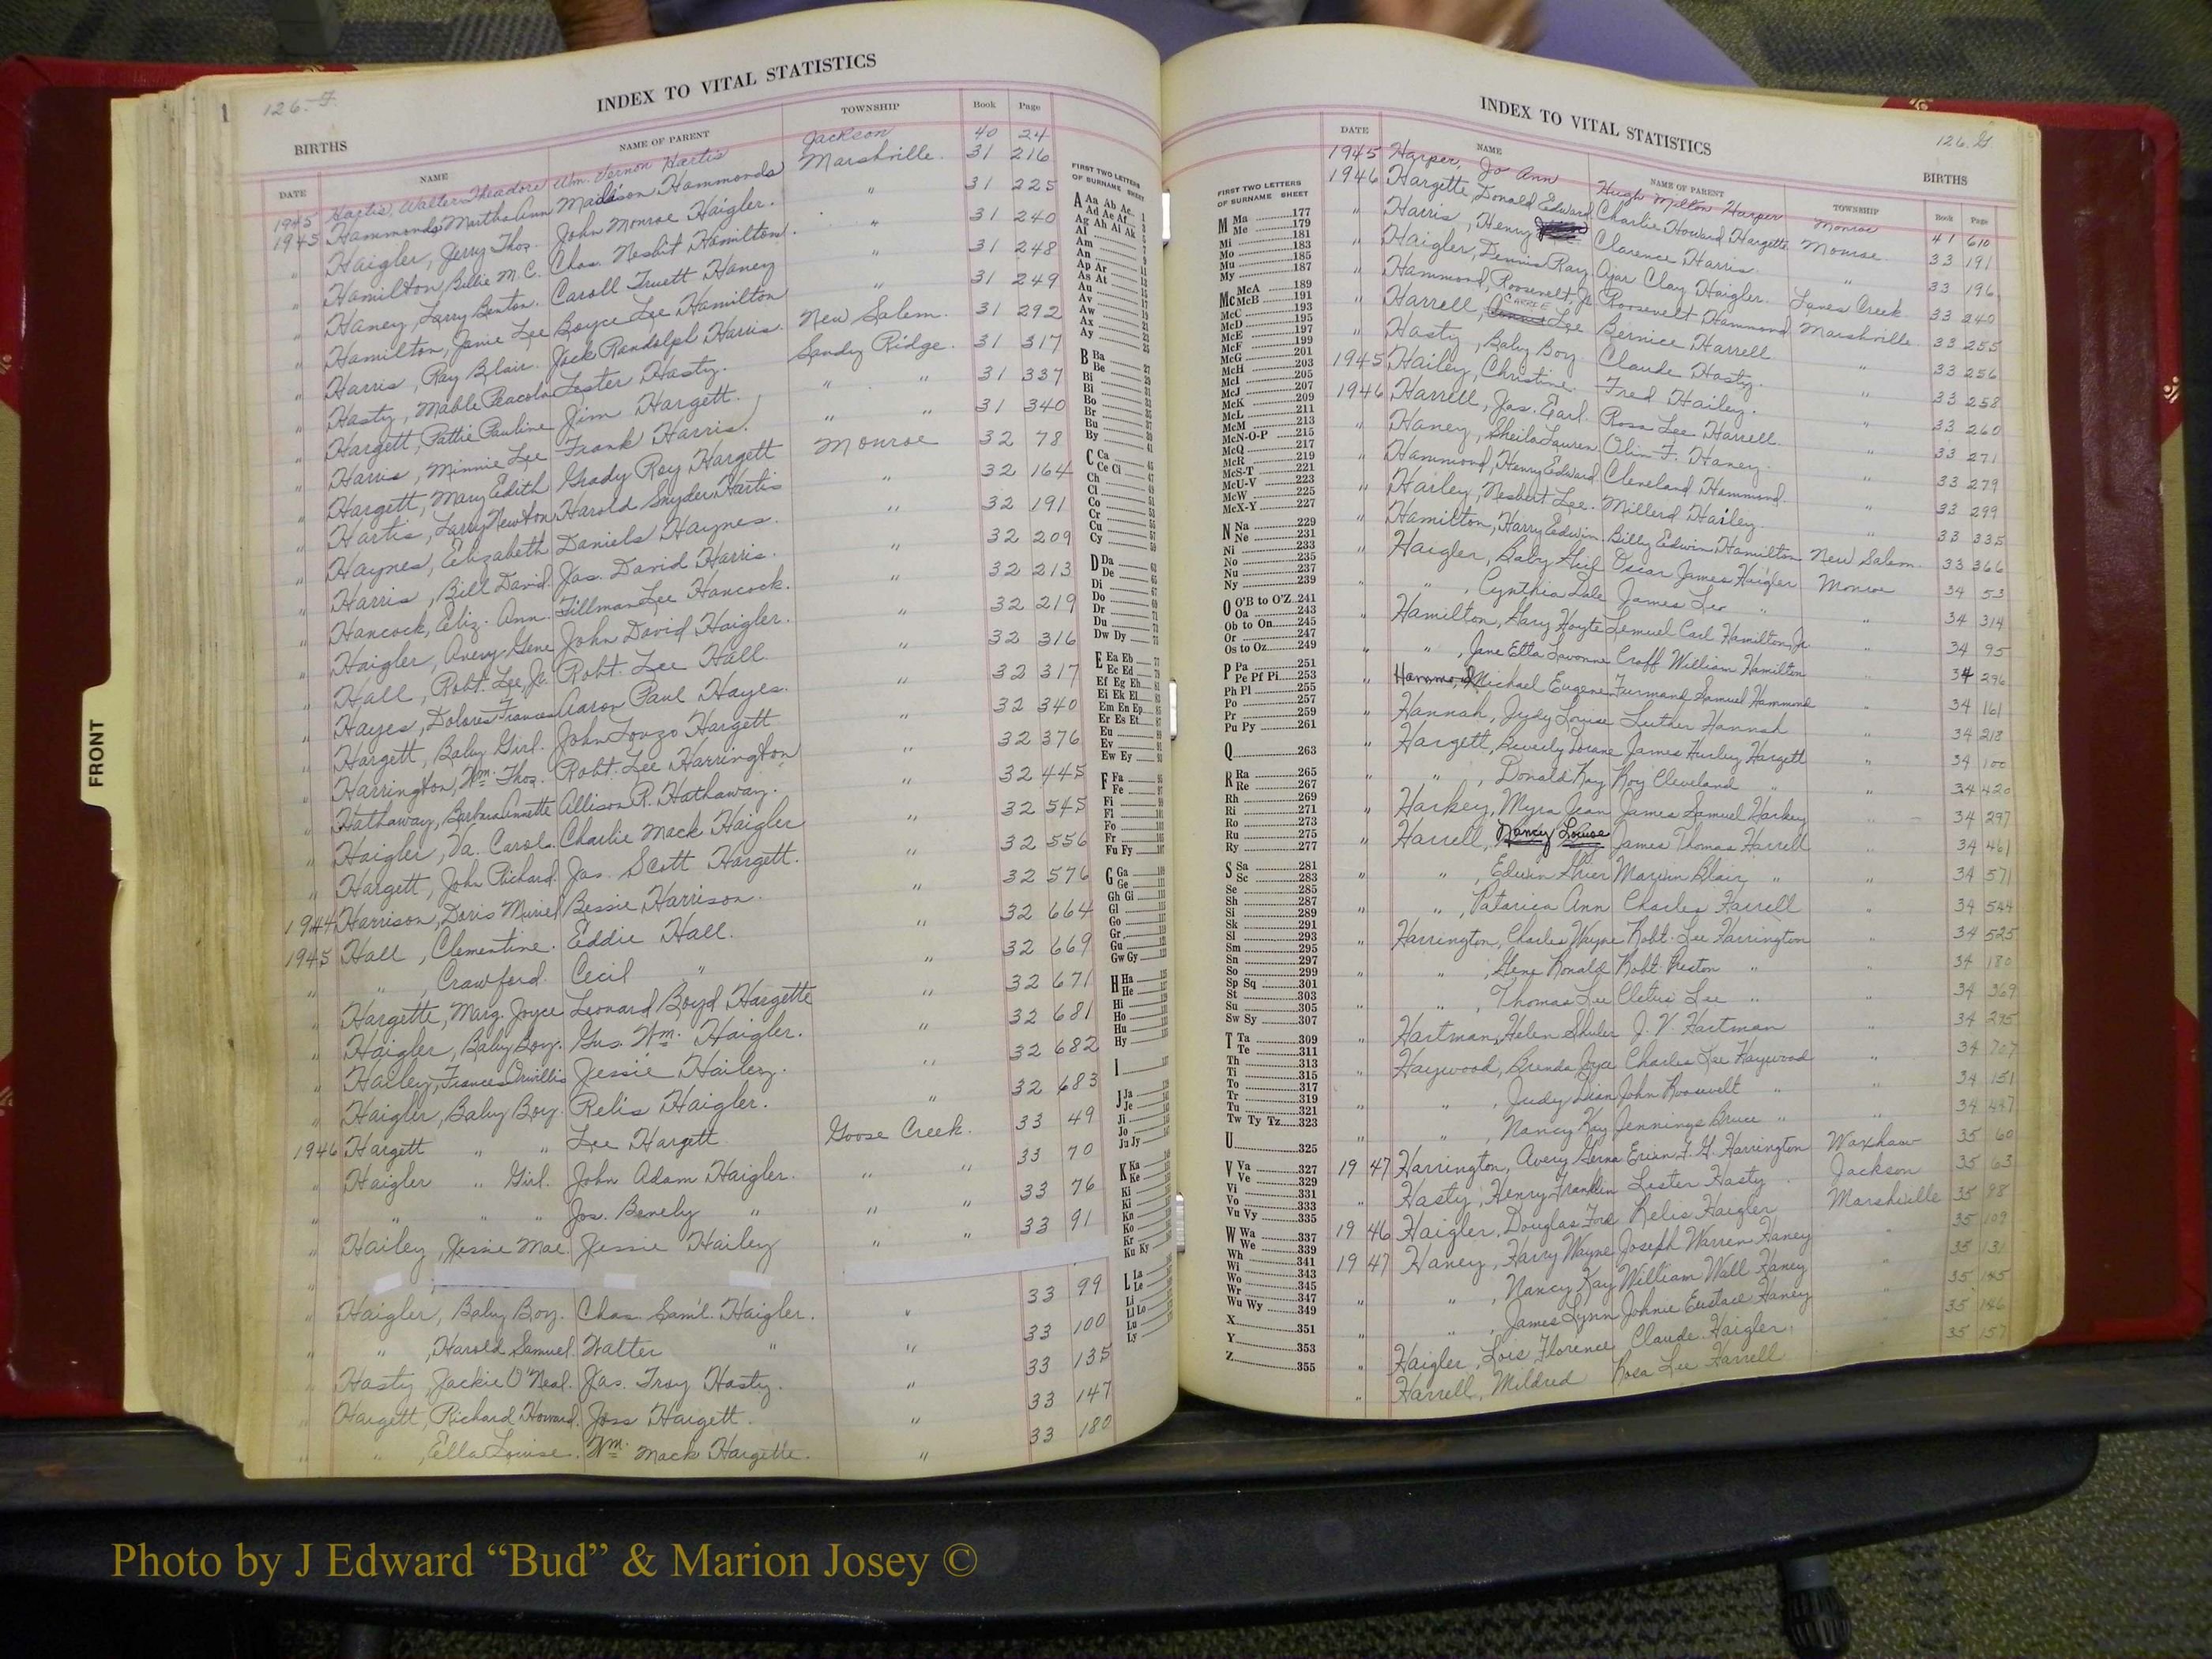 126-F
INDEX TO VITAL STATISTICS
BIRTHS
DATE NAME NAME OF PARENT TOWNSHIP Book Page
1945 Hartis, Walter Theodore Wm. Vernon Hartis Jackson 40 24
1945 Hammonds, Martha Ann Madison Hammonds Marshville. 31 216
" Haigler, Jerry Thos. John Monroe Haigler. " 31 225
" Hamilton, Billie M.C. Chas. Nesbit Hamilton. " 31 240
" Haney, Larry Benton. Caroll Truett Haney " 31 248
" Hamilton, Janie Lee Boyce Lee Hamilton " 31 249
" Harris, Ray Blair. Jack Randolph Harris. New Salem. 31 292
" Hasty, Mable Peacola Lester Hasty. Sandy Ridge. 31 317
" Hargett, Pattie Pauline Jim Hargett. " " 31 337
" Harris, Minnie Lee Frank Harris. " " 31 340
" Hargett, Mary Edith Grady Roy Hargett Monroe 32 78
" Hartis, Larry Newton Harold Snyder Hartis " 32 164
" Haynes, Elizabeth Daniels Haynes. " 32 191
" Harris, Bill David. Jas. David Harris. " 32 209
" Hancock, Eliz. Ann. Tillman Lee Hancock. " 32 213
" Haigler, Avery Gene John David Haigler. " 32 219
" Hall, Robt. Lee, Jr. Robt. Lee Hall " 32 316
" Hayes, Dolores Frances Aaron Paul Hayes. " 32 317
" Hargett, Baby Girl. John Lonzo Hargett " 32 340
" Harrington, Wm. Thos. Robt. Lee Harrington " 32 376
" Hathaway, Barbara Annette Allison R. Hathaway. " 32 445
" Haigler, Va. Carol. Charlie Mack Haigler " 32 545
" Hargett, John Richard. Jas. Scott Hargett. " 32 556
1944 Harrison, Doris Muriel Bessie Harrison. " 32 576
1945 Hall, Clementine. Eddie Hall. " 32 664
" " , Crawford. Cecil " " 32 669
" Hargette, Marg. Joyce Leonard Boyd Hargette " 32 671
" Haigler, Baby Boy. Gus. Wm. Haigler. " 32 681
" Hailey, Frances Orvillis Jessie Hailey. " 32 682
" Haigler, Baby Boy. Relis Haigler. " 32 683
1946 Hargett " " Lee Hargett Goose Creek. 33 49
" Haigler " Girl. John Adam Haigler. " " 33 70
" " " " Jos. Benely " " " 33 76
" Hailey, Jessie Mae. Jessie Hailey " " 33 91
" Haigler, Baby Boy. Chas. Saml. Haigler. " 33 99
" " , Harold Samuel. Walter " " 33 100
" Hasty, Jackie O'Neal. Jas. Troy Hasty. " 33 135
" Hargett, Richard Howard. Joss Hargett. " 33 147
" " , Ella Louise. Wm. Mack Hargette. " 33 180
FRONT
FIRST TWO LETTERS
OF SURNAME SHEET
A Aa Ab Ac
Ad Ae Af
Ag Ah Ai Ak
Al
Am
An
Ap Ar
As At
Au
Av
Aw
Ax
Ay
B Ba
Be
Bi
Bl
Bo
Br
Bu
By
C Ca
Ce Ci
Ch
Cl
Co
Cr
Cu
Cy
D Da
De
Di
Do
Dr
Du
Dw Dy
E Ea Eb
Ec Ed
Ef Eg Eh
Ei Ek El
Em En Ep
Er Es Et
Eu
Ev
Ew Ey
F Fa
Fe
Fi
Fl
Fo
Fr
Fu Fy
G Ga
Ge
Gh Gi
Gl
Go
Gr
Gu
Gw Gy
H Ha
He
Hi
Ho
Hu
Hy
I
J Ja
Je
Ji
Jo
Ju Jy
K Ka
Ke
Ki
Kl
Kn
Ko
Kr
Ku Ky
L La
Le
Li
Ll Lo
Lu
Ly
INDEX TO VITAL STATISTICS
126.G
BIRTHS
FIRST TWO LETTERS
OF SURNAME SHEET
M Ma 177
Me 179
Mi 181
Mo 183
Mu 185
My 187
Mc McA 189
McB 191
McC 193
McD 195
McE 197
McF 199
McG 201
McH 203
McI 205
McJ 207
McK 209
McL 211
McM 213
McN-O-P 215
McQ 217
McR 219
McS-T 221
McU-V 223
McW 225
McX-Y 227
N Na 229
Ne 231
Ni 233
No 235
Nu 237
Ny 239
O O'B to O'Z 241
Oa 243
Ob to On 245
Or 247
Os to Oz 249
P Pa 251
Pe Pf Pi 253
Ph Pl 255
Po 257
Pr 259
Pu Py 261
Q 263
R Ra 265
Re 267
Rh 269
Ri 271
Ro 273
Ru 275
Ry 277
S Sa 281
Sc 283
Se 285
Sh 287
Si 289
Sk 291
Sl 293
Sm 295
Sn 297
So 299
Sp Sq 301
St 303
Su 305
Sw Sy 307
T Ta 309
Te 311
Th 313
Ti 315
To 317
Tr 319
Tu 321
Tw Ty Tz 323
U 325
V Va 327
Ve 329
Vi 331
Vo 333
Vu Vy 335
W Wa 337
We 339
Wh 341
Wi 343
Wo 345
Wr 347
Wu Wy 349
X 351
Y 353
Z 355
DATE NAME NAME OF PARENT TOWNSHIP Book Page
1945 Harper, Jo Ann Hugh Milton Harper Monroe 41 610
1946 Hargette, Donald Edward Charlie Howard Hargette Monroe 33 191
" Harris, Henry Clarence Harris " 33 196
" Haigler, Dennis Ray Ajar Clay Haigler. Lanes Creek. 33 240
" Hammond, Roosevelt, Jr. Roosevelt Hammond Marshville. 33 255
" Harrell, Carrie Lee Bernice Harrell 33 256
" Hasty, Baby Boy Claude Hasty. " 33 258
1945 Hailey, Christine. Fred Hailey. " 33 260
1946 Harrell, Jas. Earl. Rosa Lee Harrell " 33 271
" Haney, Sheila Lauren. Olin F. Haney. " 33 279
" Hammond, Henry Edward. Cleveland Hammond. " 33 299
" Hailey, Nesbert Lee. Millerd Hailey. 33 335
" Hamilton, Harry Edwin. Billy Edwin Hamilton New Salem. 33 366
" Haigler, Baby Girl Oscar James Haigler Monroe 34 53
" " , Cynthia Dale James Leo " " 34 314
" Hamilton, Gary Hoyte Lemuel Carl Hamilton, Jr. " 34 95
" " , Jane Etta Lavonne Croff William Hamilton " 34 296
" Hammond, Michael Eugene Furmand Samuel Hammond " 34 161
" Hannah, Judy Louise Luther Hannah " 34 213
" Hargett, Beverly Lorane James Hurley Hargett " 34 100
" " , Donald Ray Roy Cleveland " " 34 420
" Harkey, Myra Jean James Samuel Harkey " 34 297
" Harrell, Nancy Louise James Thomas Harrell " 34 461
" " , Edwin Grier Marvin Blair " " 34 571
" " , Patricia Ann Charles Harrell " 34 544
" Harrington, Charles Wayne Robt. Lee Harrington " 34 525
" " , Gene Ronald Robt. Preston " " 34 180
" " , Thomas Lee Cletus Lee " " 34 369
" Hartman, Helen Shuler J. V. Hartman 34 295
" Haywood, Brenda Joya Charles Lee Haywood " 34 707
" " , Judy Dian John Roosevelt " " 34 151
" " , Nancy Kay Jennings Bruce " " 34 447
1947 Harrington, Avery Harrington Waxhaw 35 60
" Hasty, Henry Franklin Lester Hasty. Jackson 35 63
1946 Haigler, Douglas Ford Relis Haigler Marshville 35 98
1947 Haney, Harry Wayne Joseph Warren Haney " 35 109
" " , Nancy Kay William Wall Haney " 35 131
" " , James Lynn Johnie Eustace Haney " 35 145
" Haigler, Lois Florence Claude Haigler. 35 146
" Harrell, Mildred Rosa Lee Harrell 35 157
Photo by J Edward “Bud” & Marion Josey ©